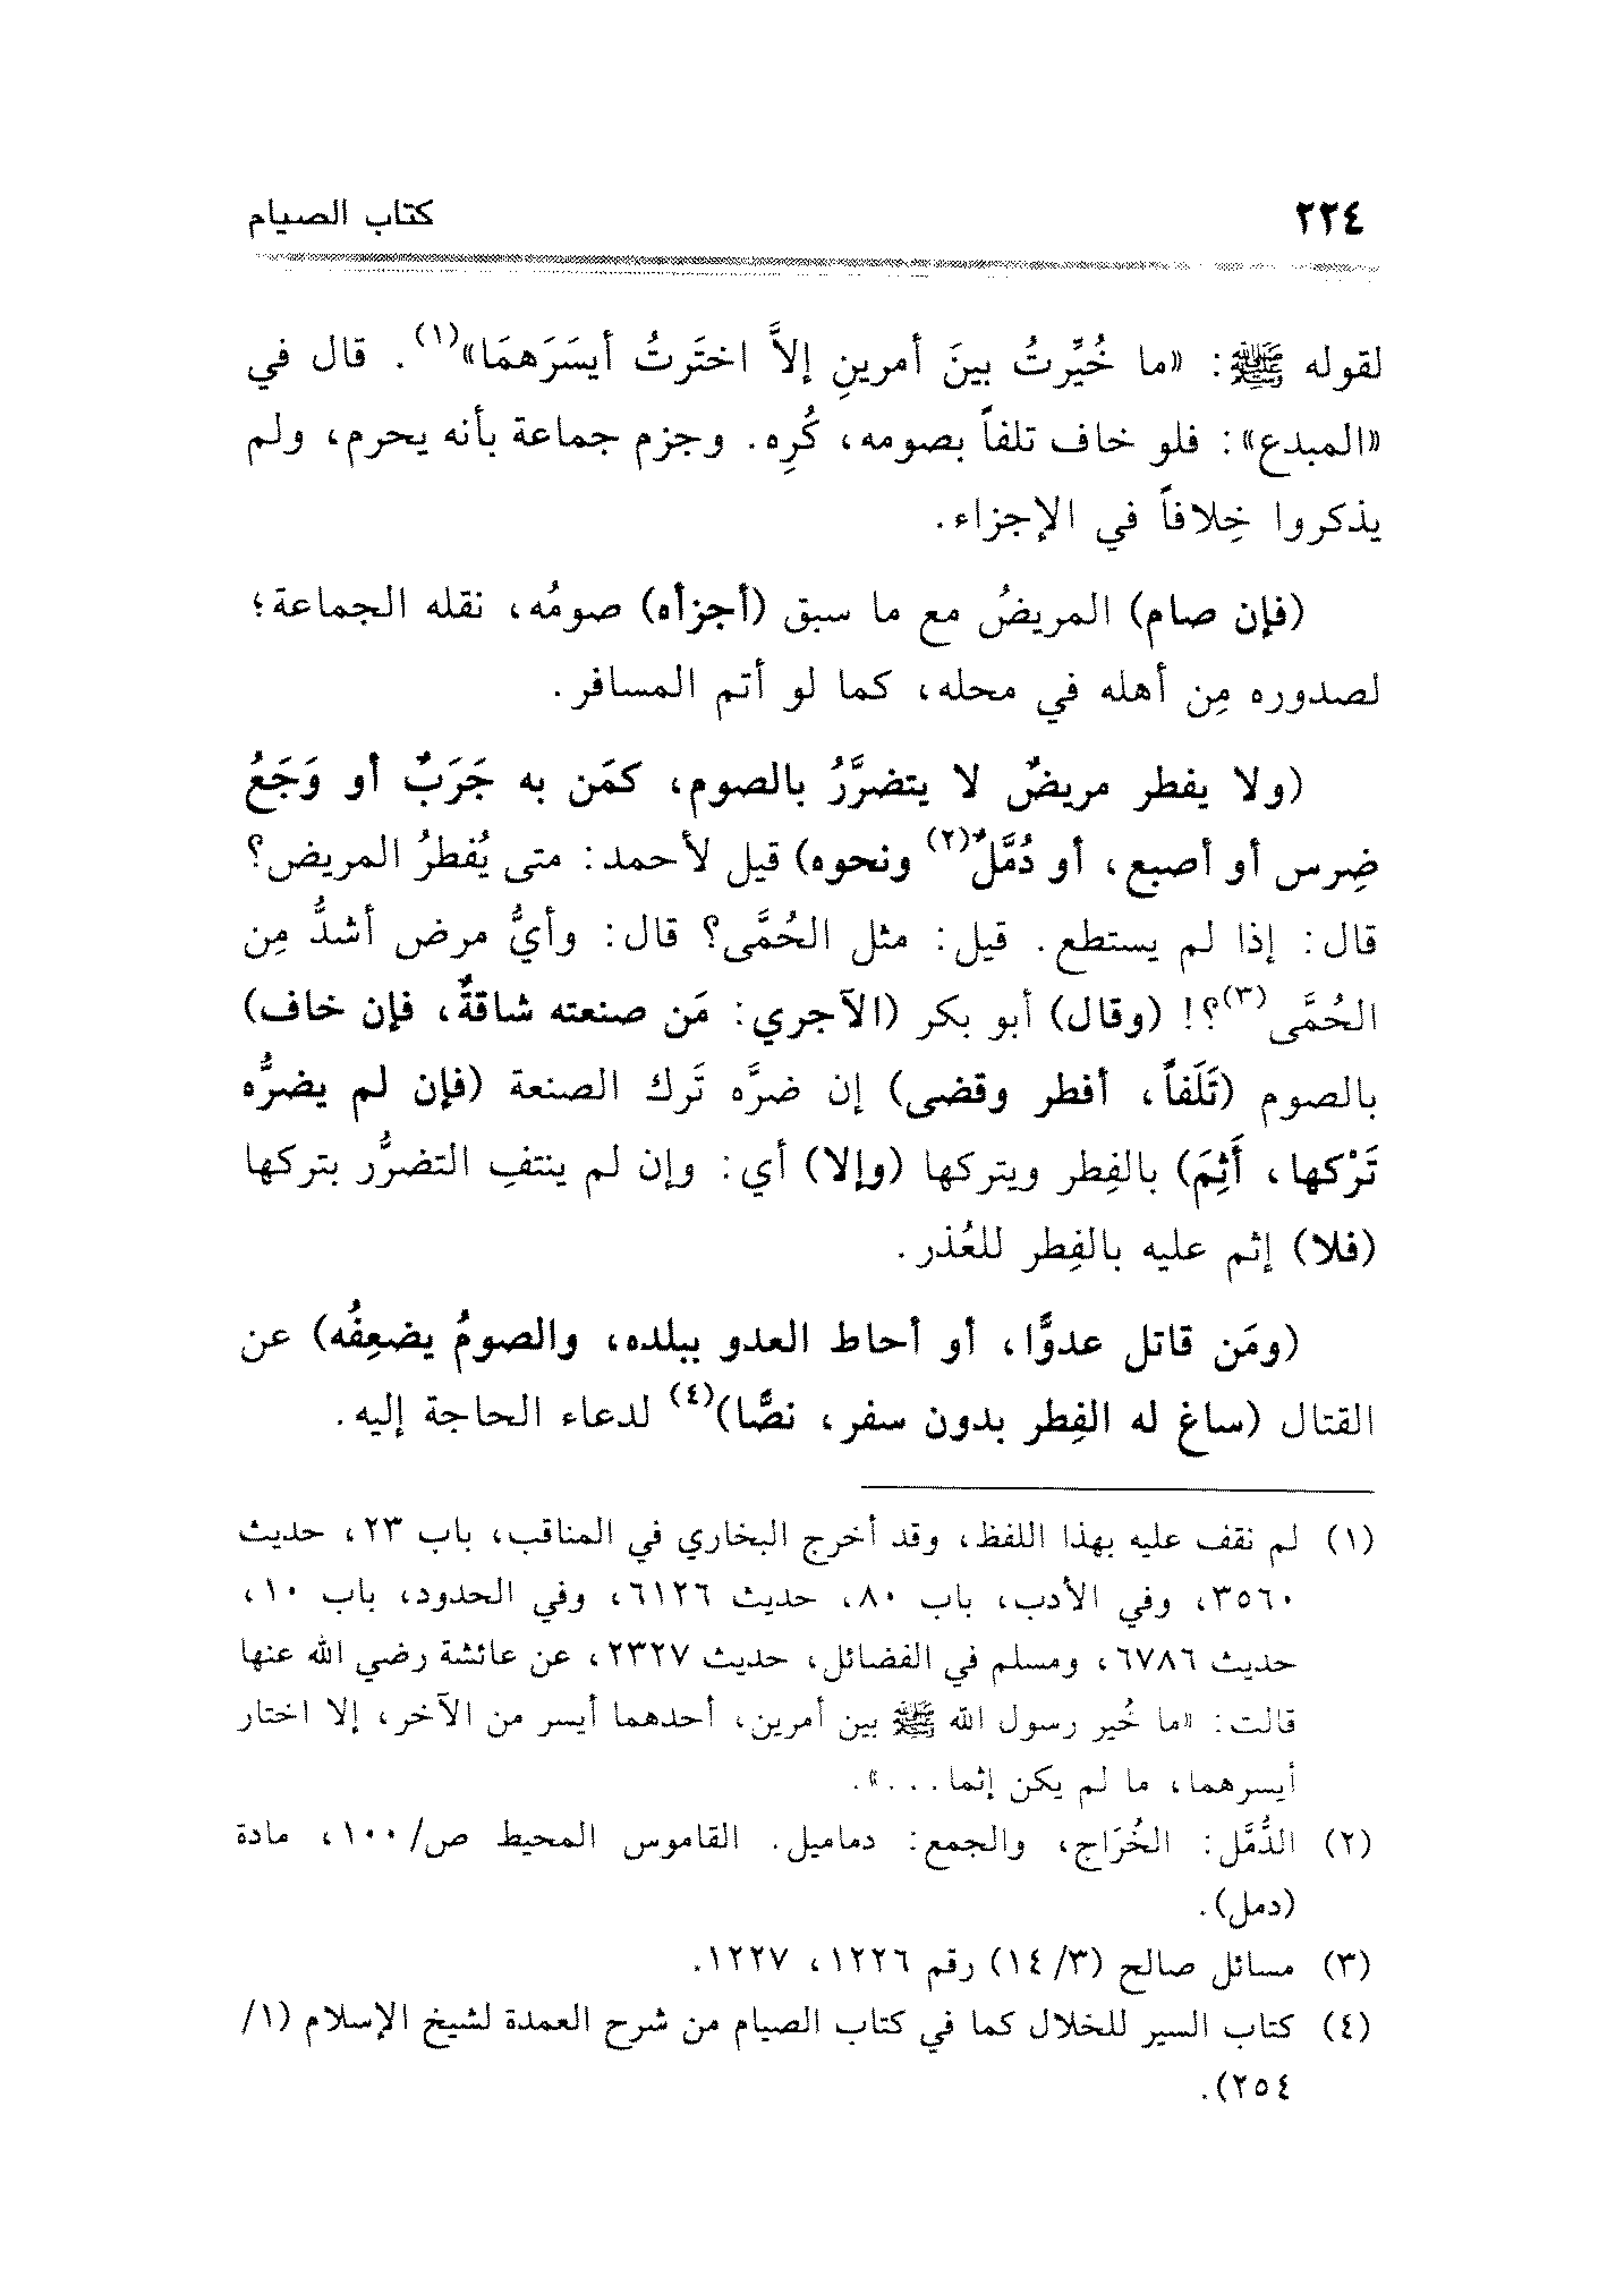 ٢٢٤
كتاب الصيام
لقوله ﷺ: «ما خُيِّرتُ بينَ أمرينِ إلاَّ اختَرتُ أيسَرَهمَا»(١). قال في
«المبدع»: فلو خاف تلفاً بصومه، كُرِه. وجزم جماعة بأنه يحرم، ولم
يذكروا خِلافاً في الإجزاء.
(فإن صام) المريضُ مع ما سبق (أجزأه) صومُه، نقله الجماعة؛
لصدوره مِن أهله في محله، كما لو أتم المسافر.
(ولا يفطر مريضٌ لا يتضرَّرُ بالصوم، كمَن به جَرَبٌ أو وَجَعُ
ضِرس أو أصبع، أو دُمَّلٌ(٢) ونحوه) قيل لأحمد: متى يُفطرُ المريض؟
قال: إذا لم يستطع. قيل: مثل الحُمَّى؟ قال: وأيُّ مرض أشدُّ مِن
الحُمَّى(٣)؟! (وقال) أبو بكر (الآجري: مَن صنعته شاقةٌ، فإن خاف)
بالصوم (تَلَفاً، أفطر وقضى) إن ضرَّه تَرك الصنعة (فإن لم يضرُّه
تَرْكها، أَثِمَ) بالفِطر ويتركها (وإلا) أي: وإن لم ينتفِ التضرُّر بتركها
(فلا) إثم عليه بالفِطر للعُذر.
(ومَن قاتل عدوًّا، أو أحاط العدو ببلده، والصومُ يضعِفُه) عن
القتال (ساغ له الفِطر بدون سفر، نصًّا)(٤) لدعاء الحاجة إليه.
(١) لم نقف عليه بهذا اللفظ، وقد أخرج البخاري في المناقب، باب ٢٣، حديث
٣٥٦٠، وفي الأدب، باب ٨٠، حديث ٦١٢٦، وفي الحدود، باب ١٠،
حديث ٦٧٨٦، ومسلم في الفضائل، حديث ٢٣٢٧، عن عائشة رضي الله عنها
قالت: «ما خُير رسول الله ﷺ بين أمرين، أحدهما أيسر من الآخر، إلا اختار
أيسرهما، ما لم يكن إثما...».
(٢) الدُّمَّل: الخُرَاج، والجمع: دماميل. القاموس المحيط ص/١٠٠، مادة
(دمل).
(٣) مسائل صالح (٣/ ١٤) رقم ١٢٢٦، ١٢٢٧.
(٤) كتاب السير للخلال كما في كتاب الصيام من شرح العمدة لشيخ الإسلام (١/
٢٥٤).